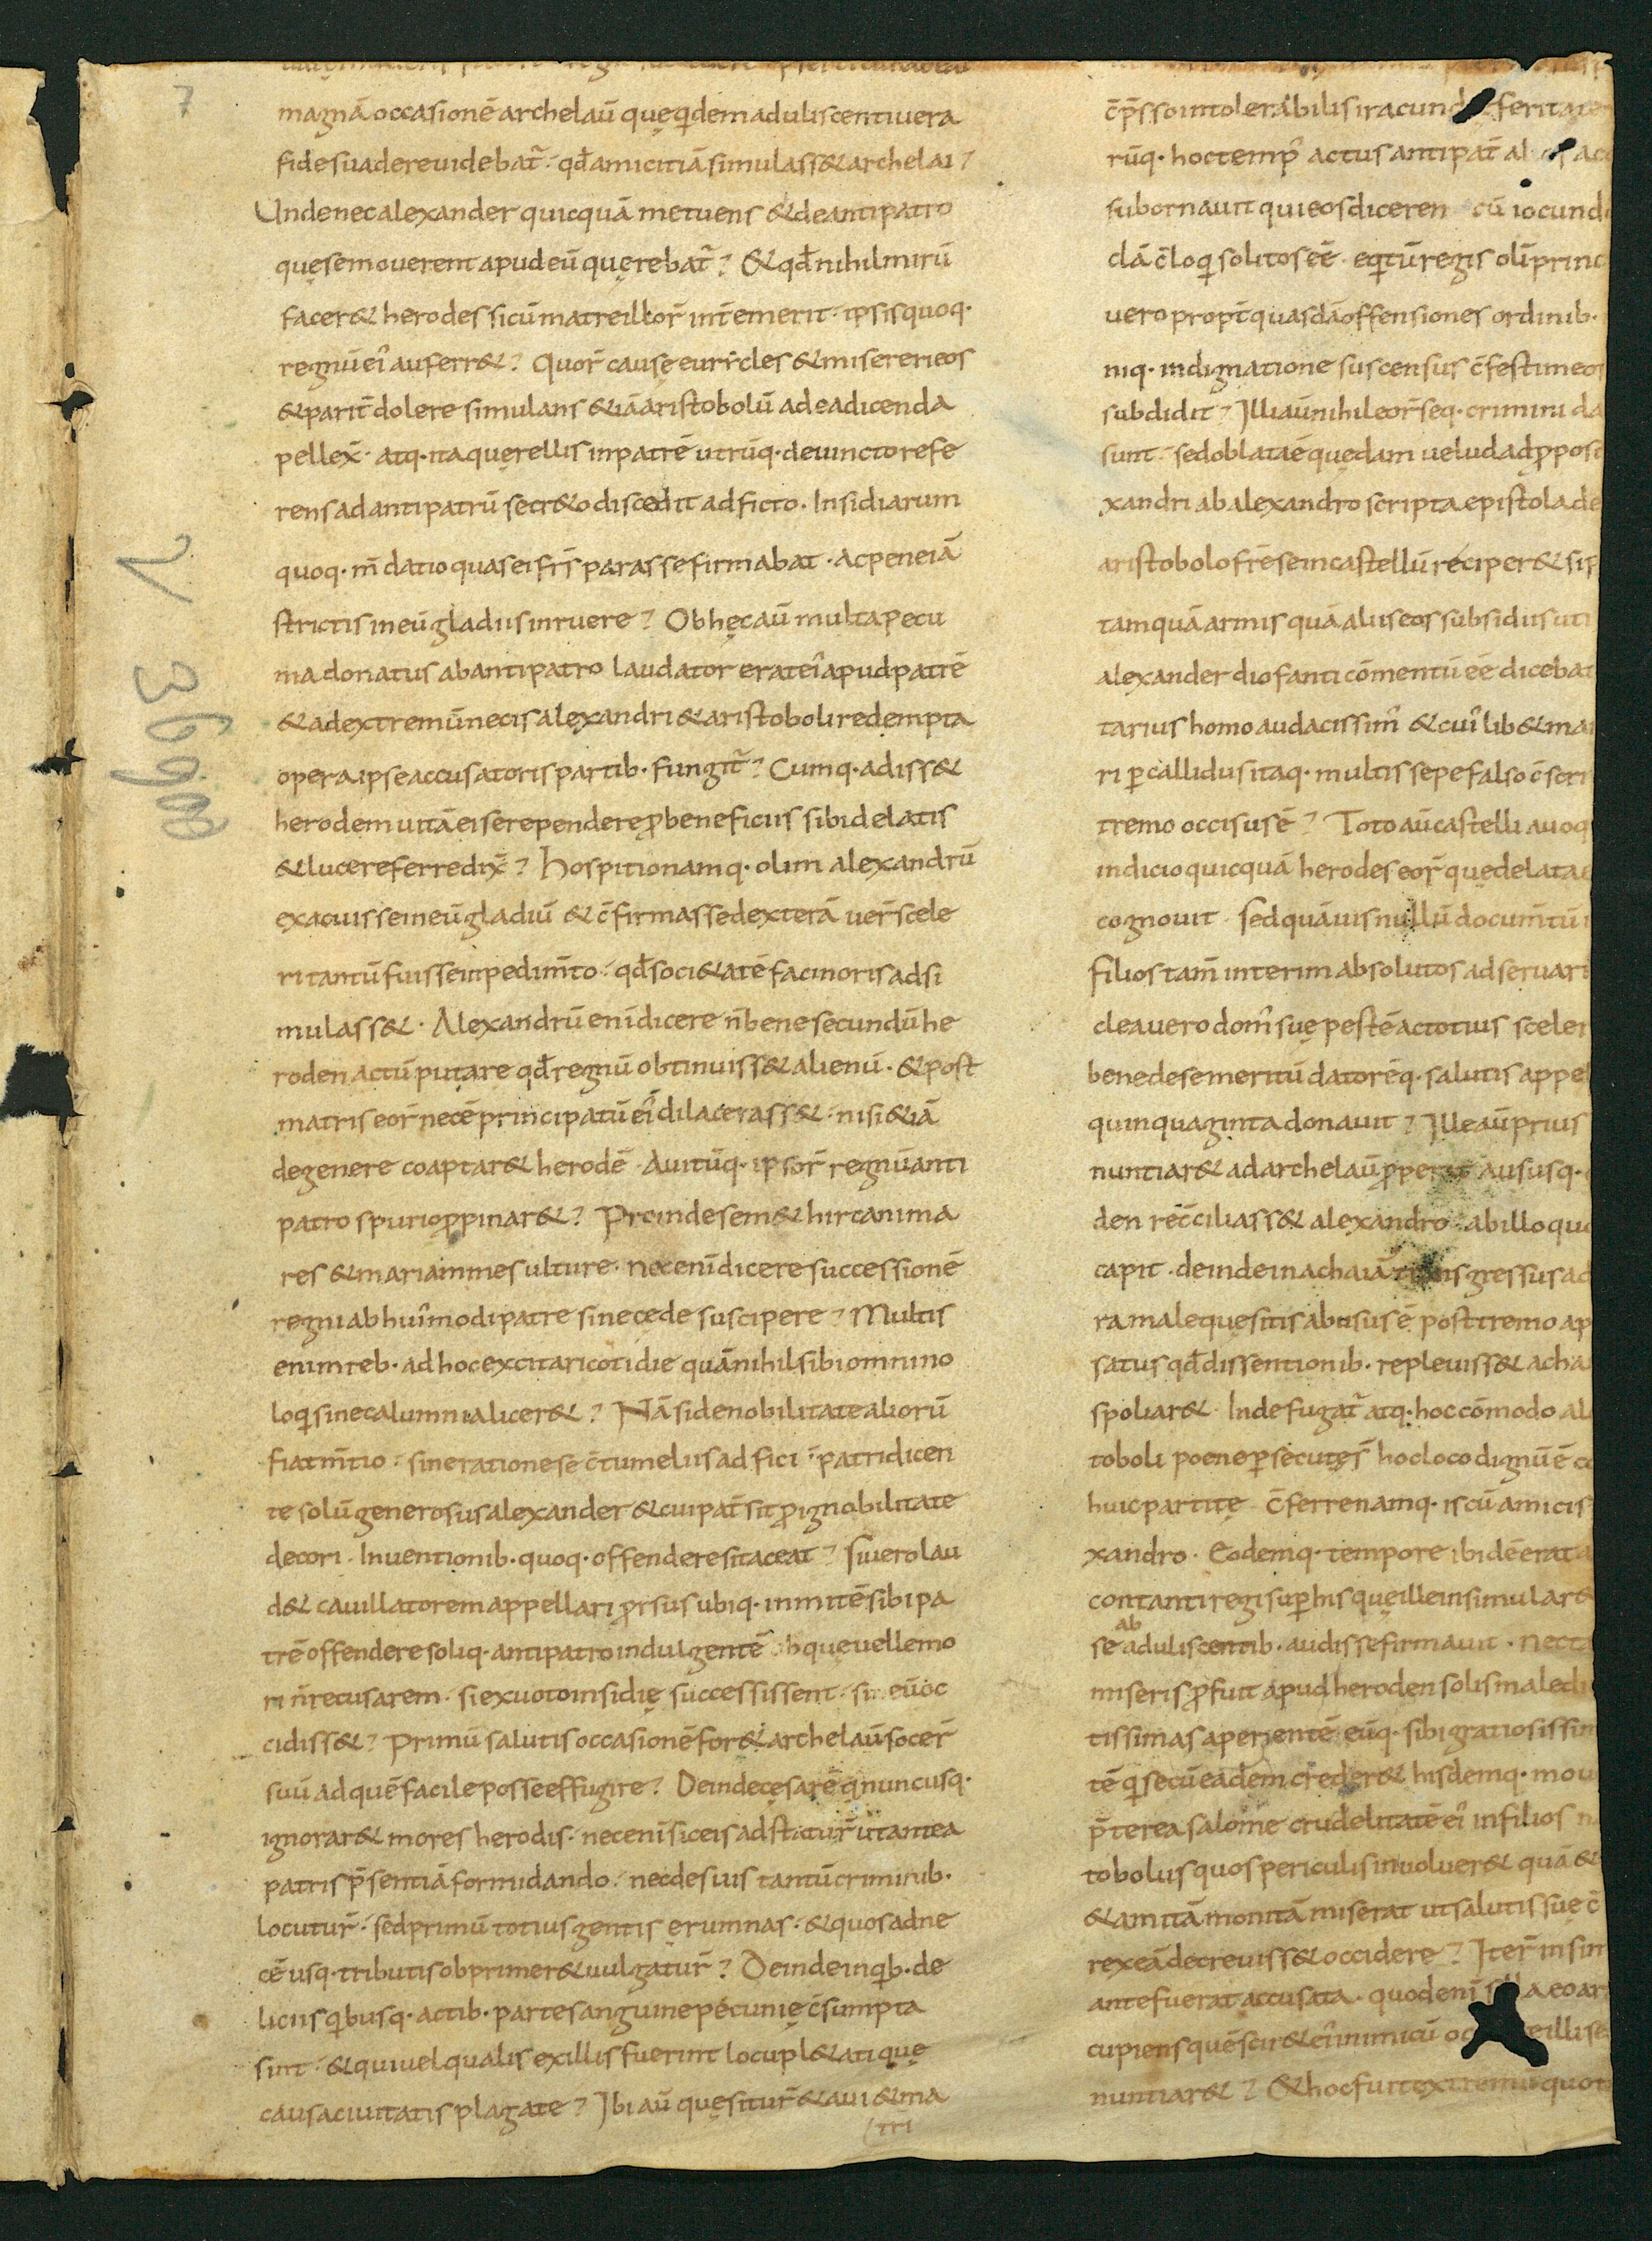 7
magnā occasionē archelaū quę q̣idem aduliscenti uera
fide suadere uidebat̄. qđ amicitiā simulass& archelai?
Unde nec alexander quicquā metuens & de antipatro
quę se mouerent apud eū quęrebat̄? & qđ nihil mirū
facer& herodes si cū matre illor̄ int̄emerit. ipsis quoq·
regnū ei' auferr&? Quor̄ cause eurycles & misereri eos
& parit̄ dolere simulans &iā aristobolū ad ea dicenda
pellex̄. atq· ita quęrellis in patrē utrūq· deuincto refe
rens ad antipatrū secr&o discedit adficto. Insidiarum
quoq· m̄datio quas ei fr̄s parasse firmabat. ac pene iā
strictis in eū gladiis inruere? Ob hęc aū multa pecu
nia donatus ab antipatro laudator erat ei' apud patrē
& ad extremū necis alexandri & aristoboli redempta
opera ipse accusatoris partib· fungit̄? Cumq· adiss&
herodem uitā ei se rependere ꝓ beneficiis sibi delatis
& luce referre dix̄? Hospitio namq· olim alexandrū
exacuisse in eū gladiū & c̄firmasse dexterā uer̄ scele
ri tantū fuisse inpedim̄to. qđ soci&atē facinoris adsi
mulass&. Alexandrū eni dicere n̄ bene secundū he
roden actū putare qđ regnū obtinuiss& alienū. & post
matris eor̄ necē principatū ei' dilacerass&. nisi &iā
degenere coaptar& herodē. Auitūq· ipsor̄ regnū anti
patro spurio ꝓpinar&? Proinde sem& hircani ma
res & mariammes ulture. nec eni dicere successionē
regni ab hui'modi patre sine cęde suscipere? Multis
enim reb· ad hoc excitari cotidie quā nihil sibi omnino
loq̣i sine calumnia licer&? Nā si de nobilitate aliorū
fiat m̄tio. sine ratione se c̄tumeliis adfici. patri dicen
te solū generosus alexander & cui pat̄ sit ꝓ ignobilitate
decori. Inuentionib· quoq· offendere si taceat? Si uero lau
d& cauillatorem appellari prorsus ubiq· inmitē sibi pa
trē offendere soliq· antipatro indulgentē ob quę uelle mo
ri n̄ recusarem. si ex uoto insidię successissent. si eū oc
cidiss&? Primū salutis occasionē for& archelaū socer̄
suū ad quē facile posse effugire? Deinde cęsarē q̣i nunc usq·
ignorar& mores herodis. nec eni sic eis adstatur̄ ut antea
patris p̄sentiā formidando. nec de suis tantū criminib·
locutur̄. sed primū totius gentis ęrumnas. & quos ad ne
cē usq· tributis obprimer& uulgatur̄? Deinde in q̣ib· de
liciis q̣ibusq· actib· parte sanguine pecunię c̄sumpta
sint. & qui uel qualis ex illis fuerint locupl&ati quę
causa ciuitatis plagate? Ibi aū quęsitur̄ & aui & ma
tri
c̄p̄sso intolerabilis iracund feritate
rūq· hoc temp' actus antipat̄ al
subornauit qui eos diceren cū iocund
dā c̄loq̣i solitos eē. eq̣itū regis olī princ
uero propt̄ quasdā offensiones ordinib·
niq· indignatione suscensus c̄festim eos
subdidit? Illi aū nihil eor̄ seq· crimini da
sunt. sed oblata ē quędam uelud ad ꝓposi
xandri ab alexandro scripta epistola de
aristobolo fr̄e se in castellū reciper& si p
tam quā armis quā aliis eos subsidiis uti
alexander diofanti cōmentū eē dicebat
tarius homo audacissim' & cui'lib& ma
ri p callidus itaq· multis sepe falso c̄scri
tremo occisus ē? Toto aū castelli auoq
indicio quicquā herodes eor̄ quę delata
cognouit. Sed quāuis nullū docum̄tū
filios tam̄ interim absolutos adseruari
clea uero dom' suę pestē ac totius sceler
bene de se meritū datorēq· salutis appel
quinquaginta donauit? Ille aū prius
nuntiar& ad archelaū ꝓper ausus q·
den rec̄ciliass& alexandro. ab illo quo
capit. deinde in achaiā gressus ad
ra male quęsitis abusus ē posttremo ap
satus qđ dissentionib· repleuiss& acha
spoliar&. Inde fugat̄ atq· hoc cōmodo al
toboli poene psecutęs hoc loco dignū ē co
huic partitę c̄ferre namq· is cū amicis
xandro. Eodemq· tempore ibidē erat
contanti regi sup his quę ille insimular&
se ab aduliscentib· audisse firmauit. Nec t
miseris ꝓfuit apud heroden solis maledi
tissimas aperientē eūq· sibi gratiosissim
tē q̣i secū eadem creder& hisdemq· mou
p̄terea salome crudelitatē ei' in filios
tobolus quos periculis inuoluer& quā &
& amitā monitā miserat ut salutis suę c̄
rex eā decreuiss& occidere? Iter̄ insim
ante fuerat accusata. quod eni a eo ar
cupiens quē scir& ei' inimicū oc illi se
nuntiar&? & hoc fuit extremu quo t